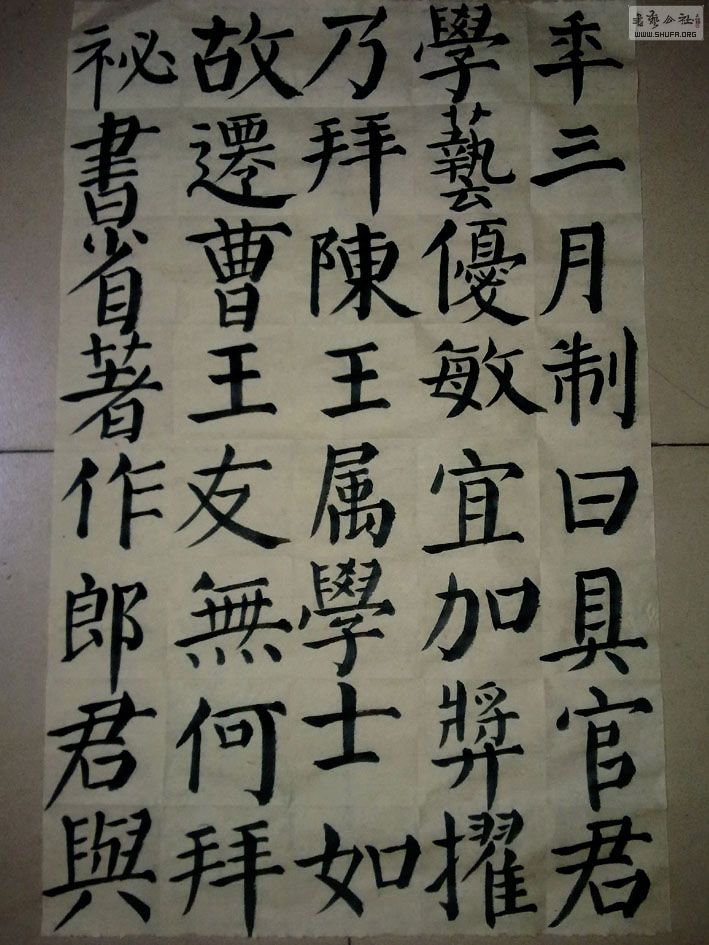 年三月制曰具官君
學藝優敏宜加獎擢
乃拜陳王属學士如
故遷曹王友無何拜
祕書省著作郎君與
書藝公社
WWW.SHUFA.ORG